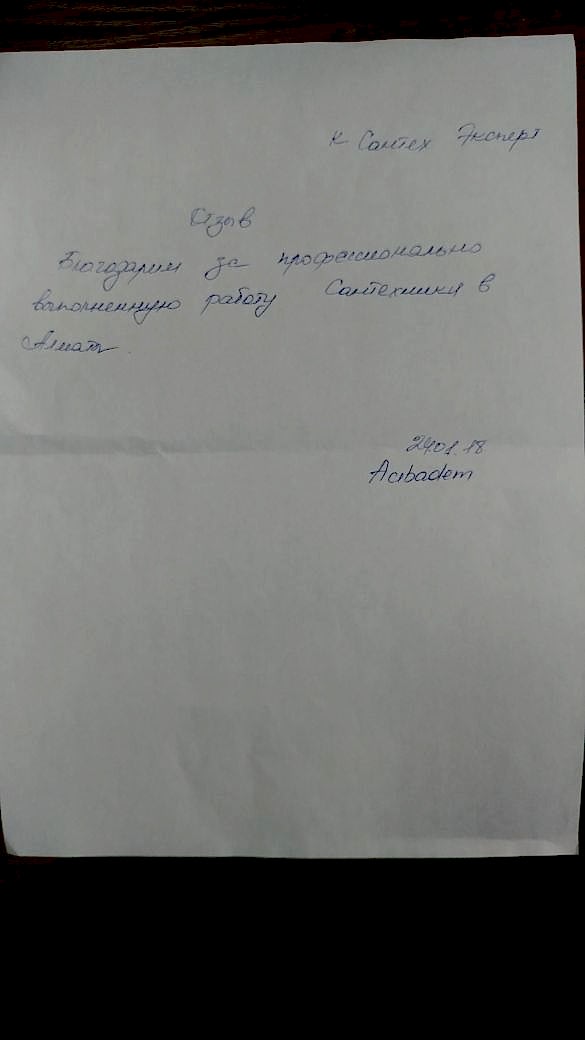 К Сантех Эксперт
Отзыв
Благодарим за профессионально
выполненную работу Сантехники в
Алматы.
24.01.18
Acıbadem